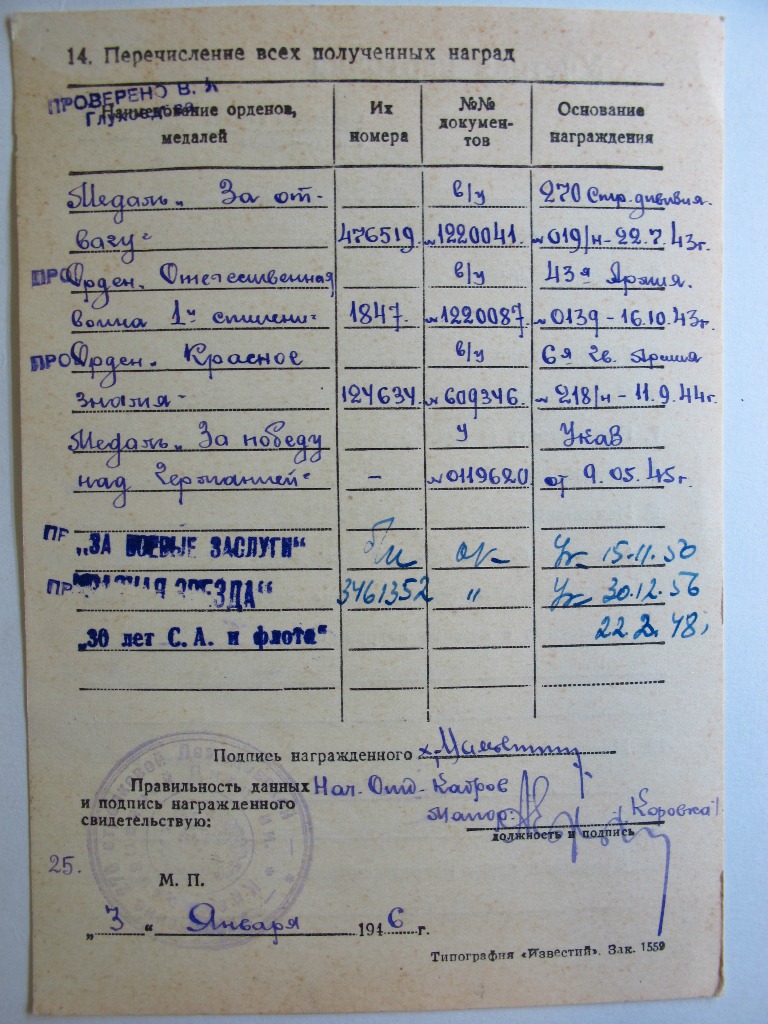 14. Перечисление всех полученных наград
ПРОВЕРЕНО В. А
Наименование орденов, медалей
Их номера
№№ докумен-тов
Основание награждения
Медаль „За от- в/у 270 Стр. дивизия.
вагу" 476519. №1220041. №019/н - 22.7.43г.
ПРО Орден „Отечественная в/у 43я Армия.
война 1й степени" 1847. №1220087. №0139 - 16.10.43г.
ПРО Орден „Красное в/у 6я Гв. Армия
знамя" 124634. №609346. №218/н - 11.9.44г.
Медаль „За победу у Указ
над Германией" - №0119620 от 9.05.45г.
ПР „ЗА БОЕВЫЕ ЗАСЛУГИ“ б/н ок Ук 15.11.50
ПР ЗВЕЗДА“ 3461352 " Ук 30.12.56
„30 лет С. А. и флота“ 22.2.48
Подпись награжденного
Правильность данных Нач. Отд. Кадров
и подпись награжденного Майор:
свидетельствую: должность и подпись
25.
М. П.
„3“ Января 1946 г.
Типография «Известий». Зак. 1559